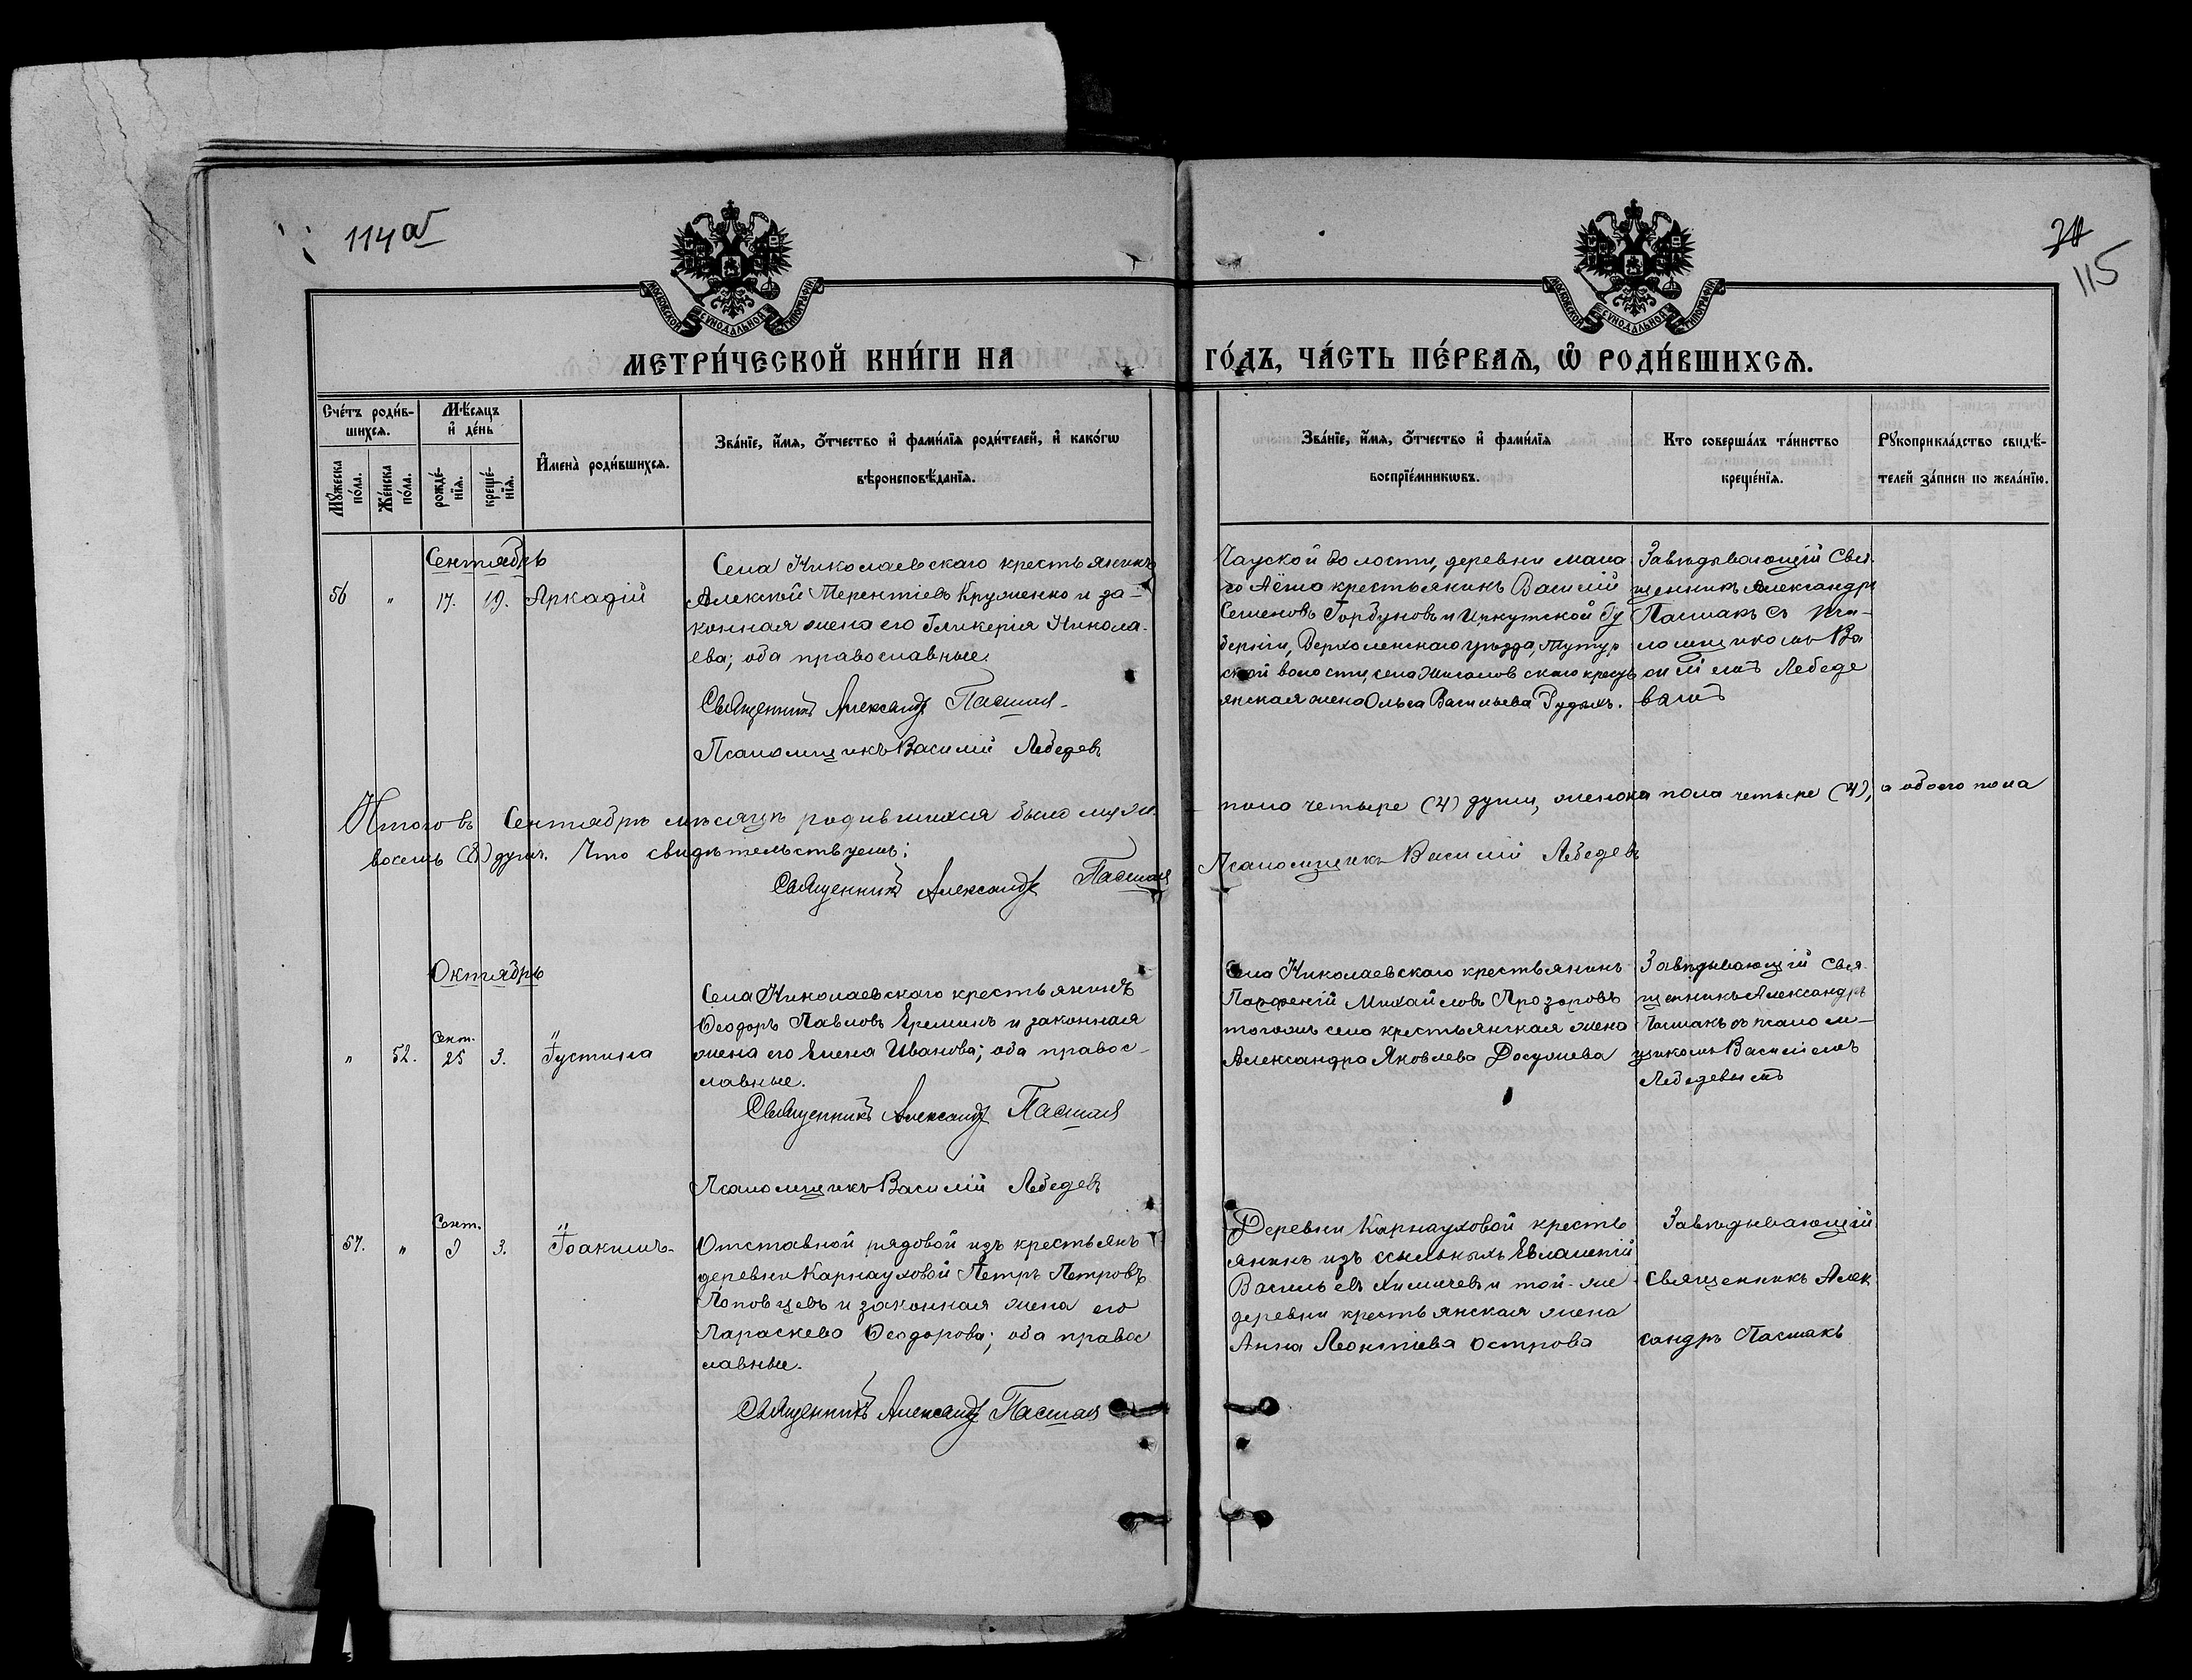 114 об
31
115
МОСКОВСКОЙ СУНОДАЛЬНОЙ ТИПОГРАФІИ
МОСКОВСКОЙ СУНОДАЛЬНОЙ ТИПОГРАФІИ
МЕТРИ́ЧЕСКОЙ КНИ́ГИ НА ГО́ДЪ, ЧА́СТЬ ПЕ́РВАѦ, Ѽ РОДИ́ВШИХСѦ.
Сче́тъ роди́в-
шихсѧ.
Мѣ́сѧцъ
и҆ де́нь
Мꙋ́жеска
по́ла.
Же́нска
по́ла.
рожде́-
нїѧ.
креще́-
нїѧ.
И҆мена̀ роди́вшихсѧ.
Зва́нїе, и҆́мѧ, ѻ҆́тчество и҆ фами́лїѧ роди́телей, и҆ како́гѡ
вѣроисповѣ́данїѧ.
Зва́нїе, и҆́мѧ, ѻ҆́тчество и҆ фами́лїѧ
воспрїе́мникѡвъ.
Кто соверша́лъ та́инство
креще́нїѧ.
Рꙋкоприкла́дство свидѣ́-
телей за́писи по жела́нїю.
Сентябрь
56 " 17. 19. Аркадій
Села Николаевскаго крестьянинъ
Алексѣй Терентіевъ Круженко и за-
конная жена его Гликерія Никола-
ева; оба православные.
Священникъ Александръ Пасмакъ
Псаломщикъ Василій Лебедевъ
волости, деревни мала
го крестьянинъ Василій
Семеновъ Горбуновъ и Иркутской Гу
берніи, Верхоленскаго уѣзда, Тутур
ской волости, села Жигаловскаго кресть
янская жена Ольга Васильева Рудыхъ.
Завѣдывающій Свя-
щенникъ Александръ
Пасмакъ съ Пса-
ломщикомъ Ва
силіемъ Лебеде
вымъ
Итого въ Сентябрѣ мѣсяцѣ родившихся было муж. пола четыре (4) души, женска пола четыре (4), а обоего пола
восемь (8) душъ. Что свидѣтельствуемъ:
Священникъ Александръ Пасмакъ Псаломщикъ Василій Лебедевъ
Октябрь
" 52. Сент. 25 3. Іустина
Села Николаевскаго крестьянинъ
Ѳеодоръ Павловъ Ереминъ и законная
жена его Елена Иванова; оба правос-
лавные.
Священникъ Александръ Пасмакъ
Псаломщикъ Василій Лебедевъ
Села Николаевскаго крестьянинъ
Парфеній Михайловъ Прозоровъ
тогожъ села крестьянская жена
Александра Яковлева Досужева
Завѣдывающій Свя-
щенникъ Александръ
Пасмакъ съ псалом-
щикомъ Василіемъ
Лебедевымъ
57. " Сент. 9 3. Іоакимъ.
Отставной рядовой изъ крестьянъ
деревни Карнауховой Петръ Петровъ
Поповцевъ и законная жена его
Параскева Ѳеодорова; оба правос
лавные.
Священникъ Александръ Пасмакъ
Деревни Карнауховой кресть
янинъ изъ ссыльныхъ Евлампій
Васильевъ Химичевъ и той-же
деревни крестьянская жена
Анна Леонтіева Острова
Завѣдывающій
священникъ Алек
сандръ Пасмакъ